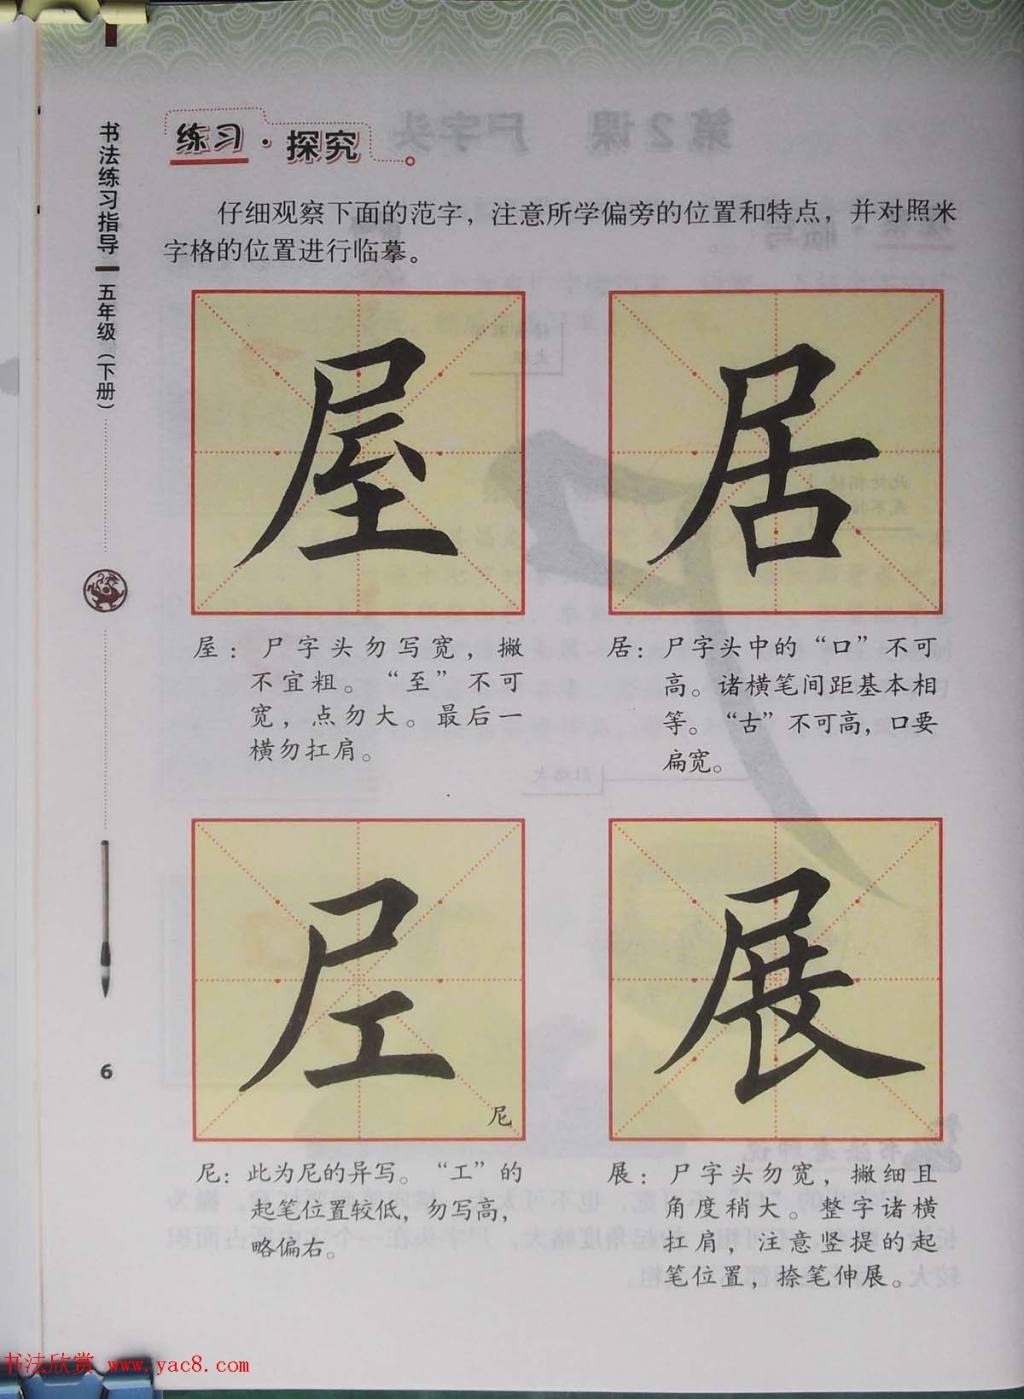 书法练习指导
五年级（下册）
6
练习·探究
仔细观察下面的范字，注意所学偏旁的位置和特点，并对照米
字格的位置进行临摹。
屋
居
屋：尸字头勿写宽，撇
不宜粗。“至”不可
宽，点勿大。最后一
横勿扛肩。
居：尸字头中的“口”不可
高。诸横笔间距基本相
等。“古”不可高，口要
扁宽。
尼
展
尼：此为尼的异写。“工”的
起笔位置较低，勿写高，
略偏右。
展：尸字头勿宽，撇细且
角度稍大。整字诸横
扛肩，注意竖提的起
笔位置，捺笔伸展。
书法欣赏 www.yac8.com